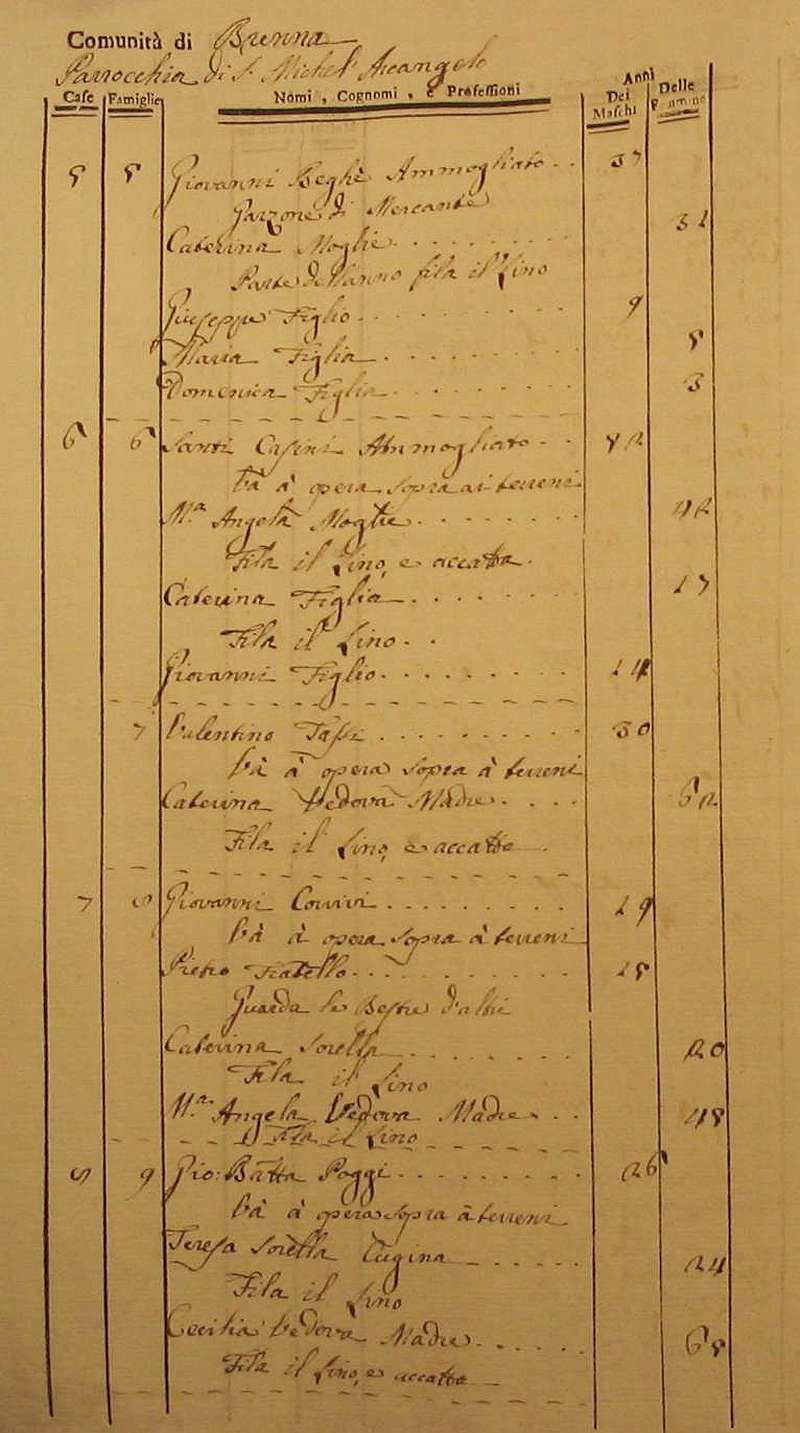 Comunità di Brenna
Parrocchia di S. Michel' Arcangelo
Case Famiglie Nomi, Cognomi, e Professioni Anni Dei Maschi Delle Femmine
8 8 Giovanni Ammogliato 37
Garzone di Mercante
Caterina Moglie 31
fila il fino
Giuseppe Figlio 9
Maria Figlia 8
Domenica Figlia 3
6 6 Santi Casini Ammogliato 42
Và à opera sopra ai terreni
M.a Angela Moglie 42
Fila il fino, e accatta
Caterina Figlia 17
Fila il fino
Giovanni Figlio 14
7 Valentino Tassi 30
Và à opera sopra à terreni
Caterina Vedova Madre 62
Fila il fino, e accatta
7 Giovanni 19
Và à opera sopra à terreni
Pietro Fratello 18
Guarda le Bestie
Caterina Sorella 20
Fila il fino
M.a Angela Vedova Madre 48
Fila il fino
9 Gio: Batta Poggi 26
Và à opera sopra à terreni
Teresa Sorella Cugina 24
Fila il fino
Cecilia Vedova Madre 68
Fila il fino, e accatta